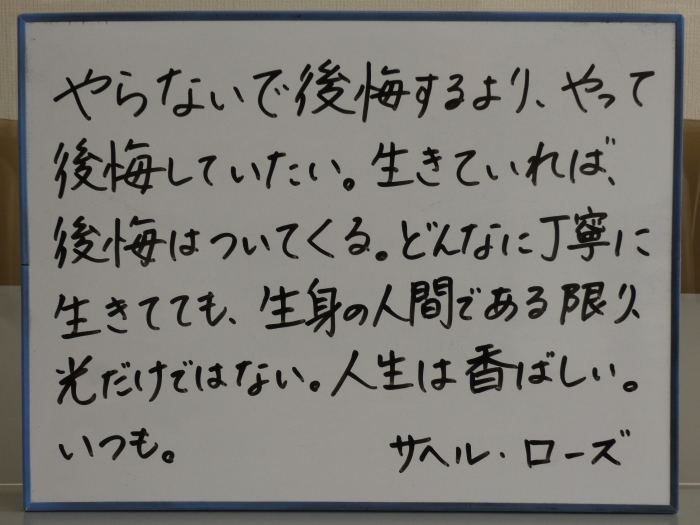 やらないで後悔するより、やって
後悔していたい。生きていれば、
後悔はついてくる。どんなに丁寧に
生きてても、生身の人間である限り、
光だけではない。人生は香ばしい。
いつも。 サヘル・ローズ